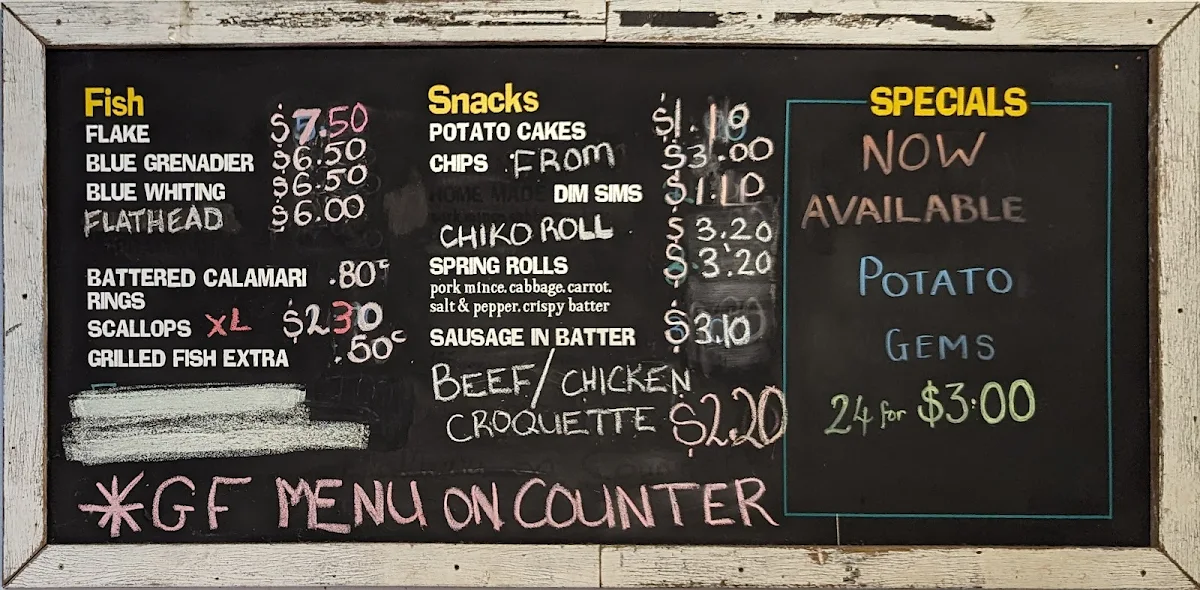 Fish
FLAKE $7.50
BLUE GRENADIER $6.50
BLUE WHITING $6.50
FLATHEAD $6.00
BATTERED CALAMARI .80c
RINGS
SCALLOPS XL $2.30
GRILLED FISH EXTRA .50c
Snacks
POTATO CAKES $1.10
CHIPS FROM $3.00
HOME MADE DIM SIMS $1.10
CHIKO ROLL $3.20
SPRING ROLLS $3.20
pork mince, cabbage, carrot,
salt & pepper, crispy batter
SAUSAGE IN BATTER $3.10
BEEF/CHICKEN
CROQUETTE $2.20
*GF MENU ON COUNTER
SPECIALS
NOW
AVAILABLE
POTATO
GEMS
24 for $3.00